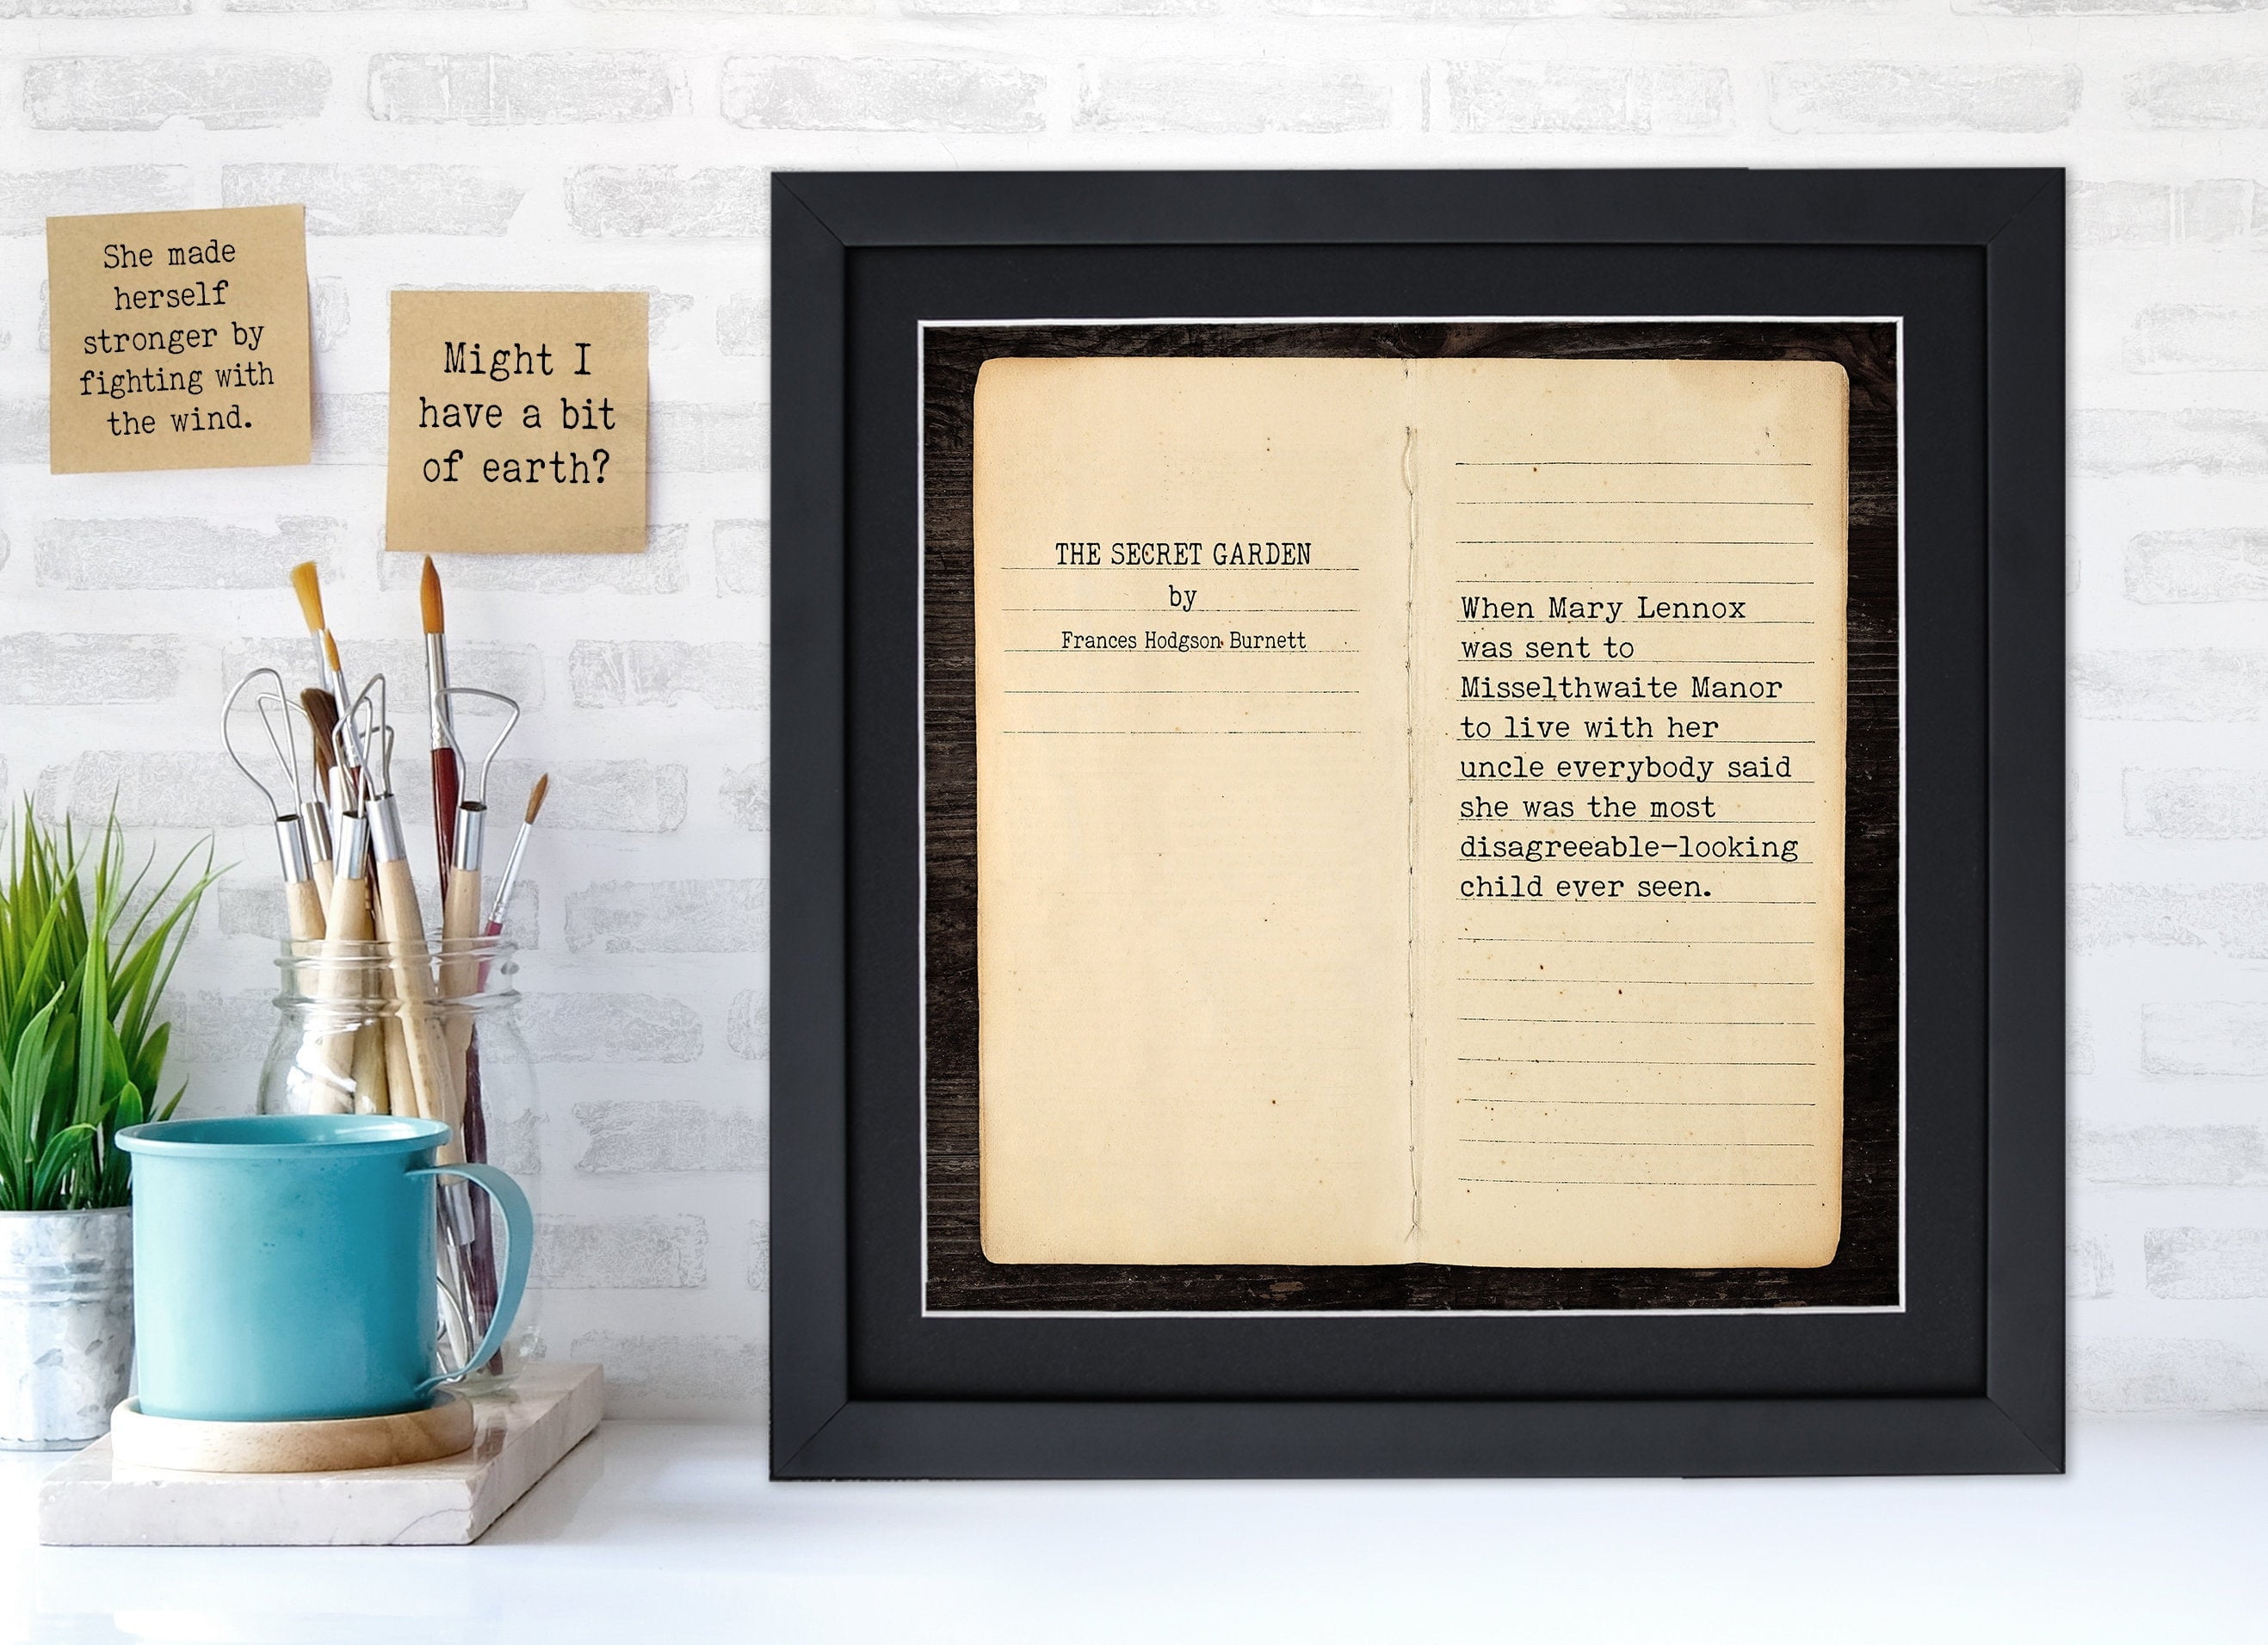 She made
herself
stronger by
fighting with
the wind.
Might I
have a bit
of earth?
THE SECRET GARDEN
by
Frances Hodgson Burnett
When Mary Lennox
was sent to
Misselthwaite Manor
to live with her
uncle everybody said
she was the most
disagreeable-looking
child ever seen.